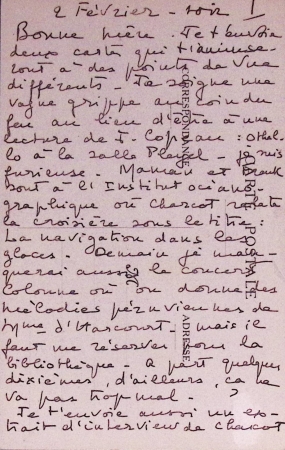 2 Février - soir I
Bonne mère. Je t'envoie
deux cartes qui t'amuse-
ront à des points de vue
différents - Je soigne une
vague grippe au coin du
feu au lieu d'être à une
lecture de J. Copeau : Othel-
lo à la salle Pleyel - je suis
furieuse. Maman et Frank
sont à l'Institut océano-
graphique où Charcot relate
la croisière sous le titre :
La navigation dans les
glaces. Demain je man-
querai aussi le concert
Colonne où on donne des
mélodies péruviennes de
Mme d'Harcourt. mais il
faut me réserver pour la
bibliothèque - A part quelques
dixièmes, d'ailleurs, ça ne
va pas trop mal -
Je t'envoie aussi un ex-
trait d'interview de Charcot
CORRESPONDANCE
CARTE POSTALE
ADRESSE